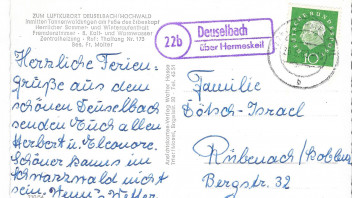 ZUM LUFTKURORT DEUSELBACH/HOCHWALD
Inmitten Tannenwaldungen am Fuße des Erbeskopf
Herrlicher Sommer- und Wintersaufenthalt
Fremdenzimmer - K. Kalt- und Warmwasser
Zentralheizung - Ruf: Thalfang Nr. 175
Bes. F. Molter
22b
Deuselbach
über Hermeskeil
DEUTSCHE BUNDESPOST
10
b
Herzliche Ferien-
grüße aus dem
schönen Deuselbach
senden Euch allen
Herbert u. Eleonore.
Schöner kanns im
Schwarzwald nicht
sein. Wenn's Wetter
Familie
Götsch-Israel
Rübenach/Koblenz
Bergstr. 32